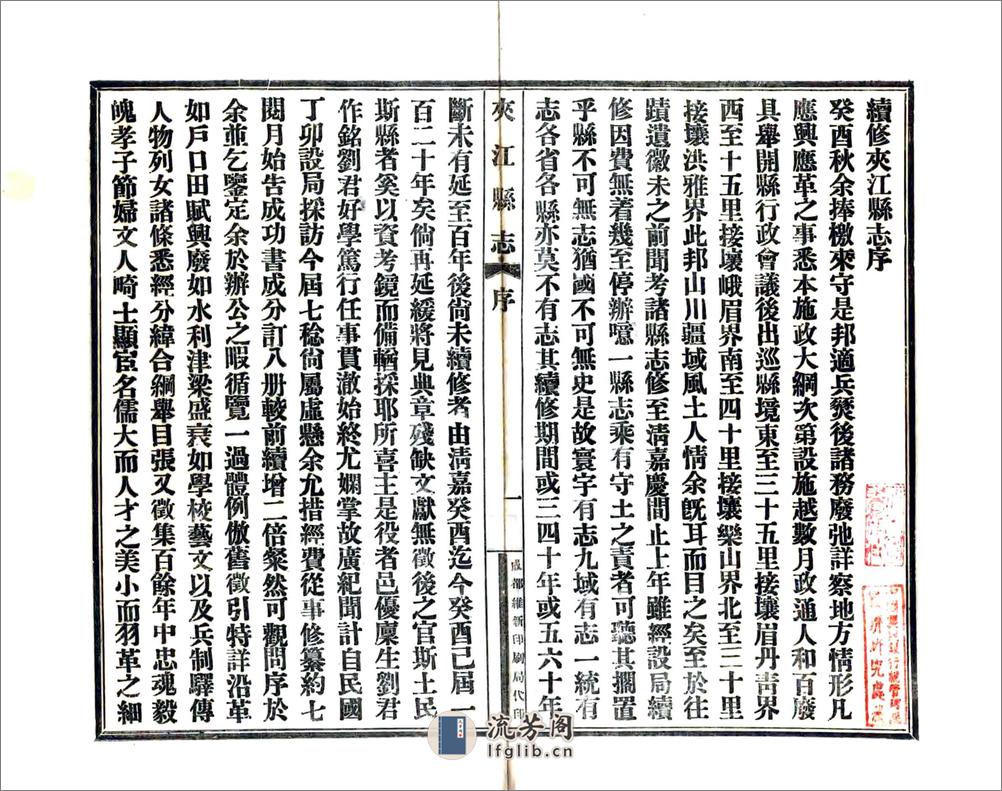 續修夾江縣志序
癸酉秋余捧檄來守是邦適兵燹後諸務廢弛詳察地方情形凡
應興應革之事悉本施政大綱次第設施越數月政通人和百廢
具舉開縣行政會議後出巡縣境東至三十五里接壤眉丹青界
西至十五里接壤峨眉界南至四十里接壤樂山界北至三十里
接壤洪雅界此邦山川疆域風土人情余旣耳而目之矣至於往
蹟遺徽未之前聞考諸縣志修至淸嘉慶間止上年雖經設局續
修因費無着幾至停辦噫一縣志乘有守土之責者可聽其擱置
乎縣不可無志猶國不可無史是故寰宇有志九域有志一統有
志各省各縣亦莫不有志其續修期間或三四十年或五六十年
夾江縣志 序 一 成都維新印刷局代印
斷未有延至百年後尙未續修者由淸嘉癸酉迄今癸酉已屆一
百二十年矣倘再延緩將見典章殘缺文獻無徵後之官斯土民
斯縣者奚以資考鏡而備輶採耶所喜主是役者邑優廩生劉君
作銘劉君好學篤行任事貫澈始終尤嫻掌故廣紀聞計自民國
丁卯設局採訪今屆七稔尙屬虛懸余允措經費從事修纂約七
閱月始告成功書成分訂八册較前續增二倍粲然可觀問序於
余並乞鑒定余於辦公之暇循覽一過體例倣舊徵引特詳沿革
如戶口田賦興廢如水利津梁盛衰如學校藝文以及兵制驛傳
人物列女諸條悉經分緯合綱舉目張又徵集百餘年中忠魂毅
魄孝子節婦文人畸士顯宦名儒大而人才之美小而羽革之細
流芳阁
lfglib.cn